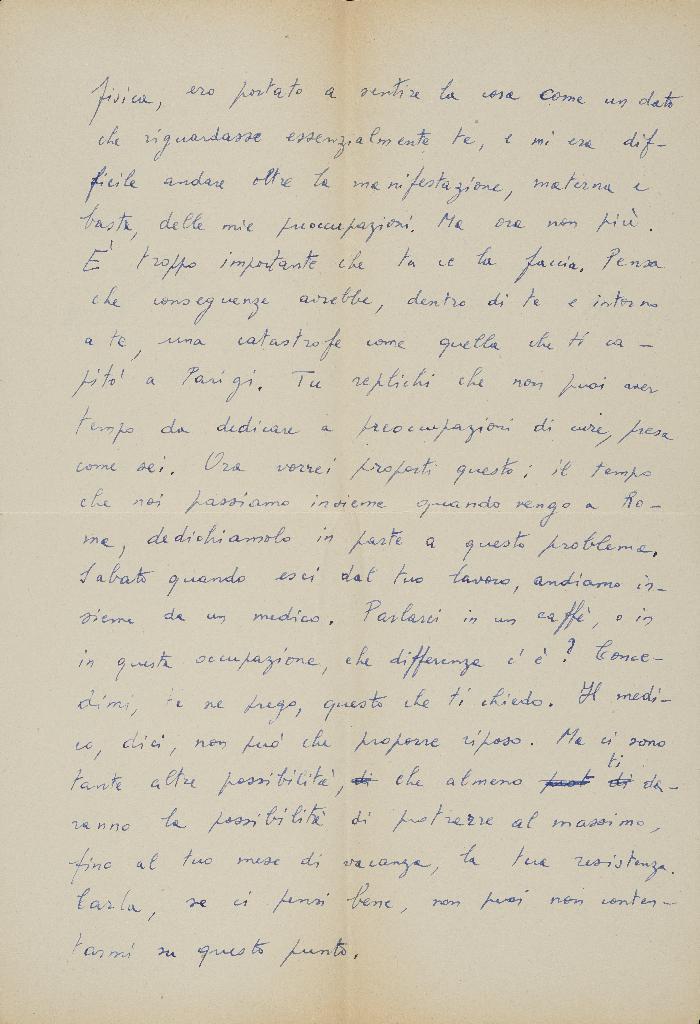 fisica, ero portato a sentire la cosa come un dato
che riguardasse essenzialmente te, e mi era dif-
ficile andare oltre la manifestazione, materna e
basta, delle mie preoccupazioni. Ma ora non più.
È troppo importante che tu ce la faccia. Pensa
che conseguenze avrebbe, dentro di te e intorno
a te, una catastrofe come quella che ti ca-
pitò a Parigi. Tu replichi che non puoi aver
tempo da dedicare a preoccupazioni di cure, presa
come sei. Ora vorrei proporti questo: il tempo
che noi passiamo insieme quando vengo a Ro-
ma, dedichiamolo in parte a questo problema.
Sabato quando esci dal tuo lavoro, andiamo in-
sieme da un medico. Parlarci in un caffè, o in
in questa occupazione, che differenza c'è? Conce-
dimi, te ne prego, questo che ti chiedo. Il medi-
co, dici, non può che proporre riposo. Ma ci sono
tante altre possibilità, di che almeno prot di ti da-
ranno la possibilità di protrarre al massimo,
fino al tuo mese di vacanza, la tua resistenza.
Carla, se ci pensi bene, non puoi non conten-
tarmi su questo punto.